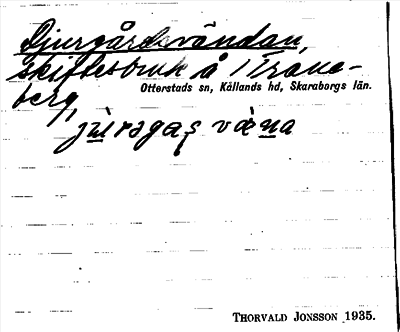 Djurgårdsvändan,
skiftesbruk å Trane-
berg,
Otterstads sn, Kållands hd, Skaraborgs län.
THORVALD JONSSON 1935.